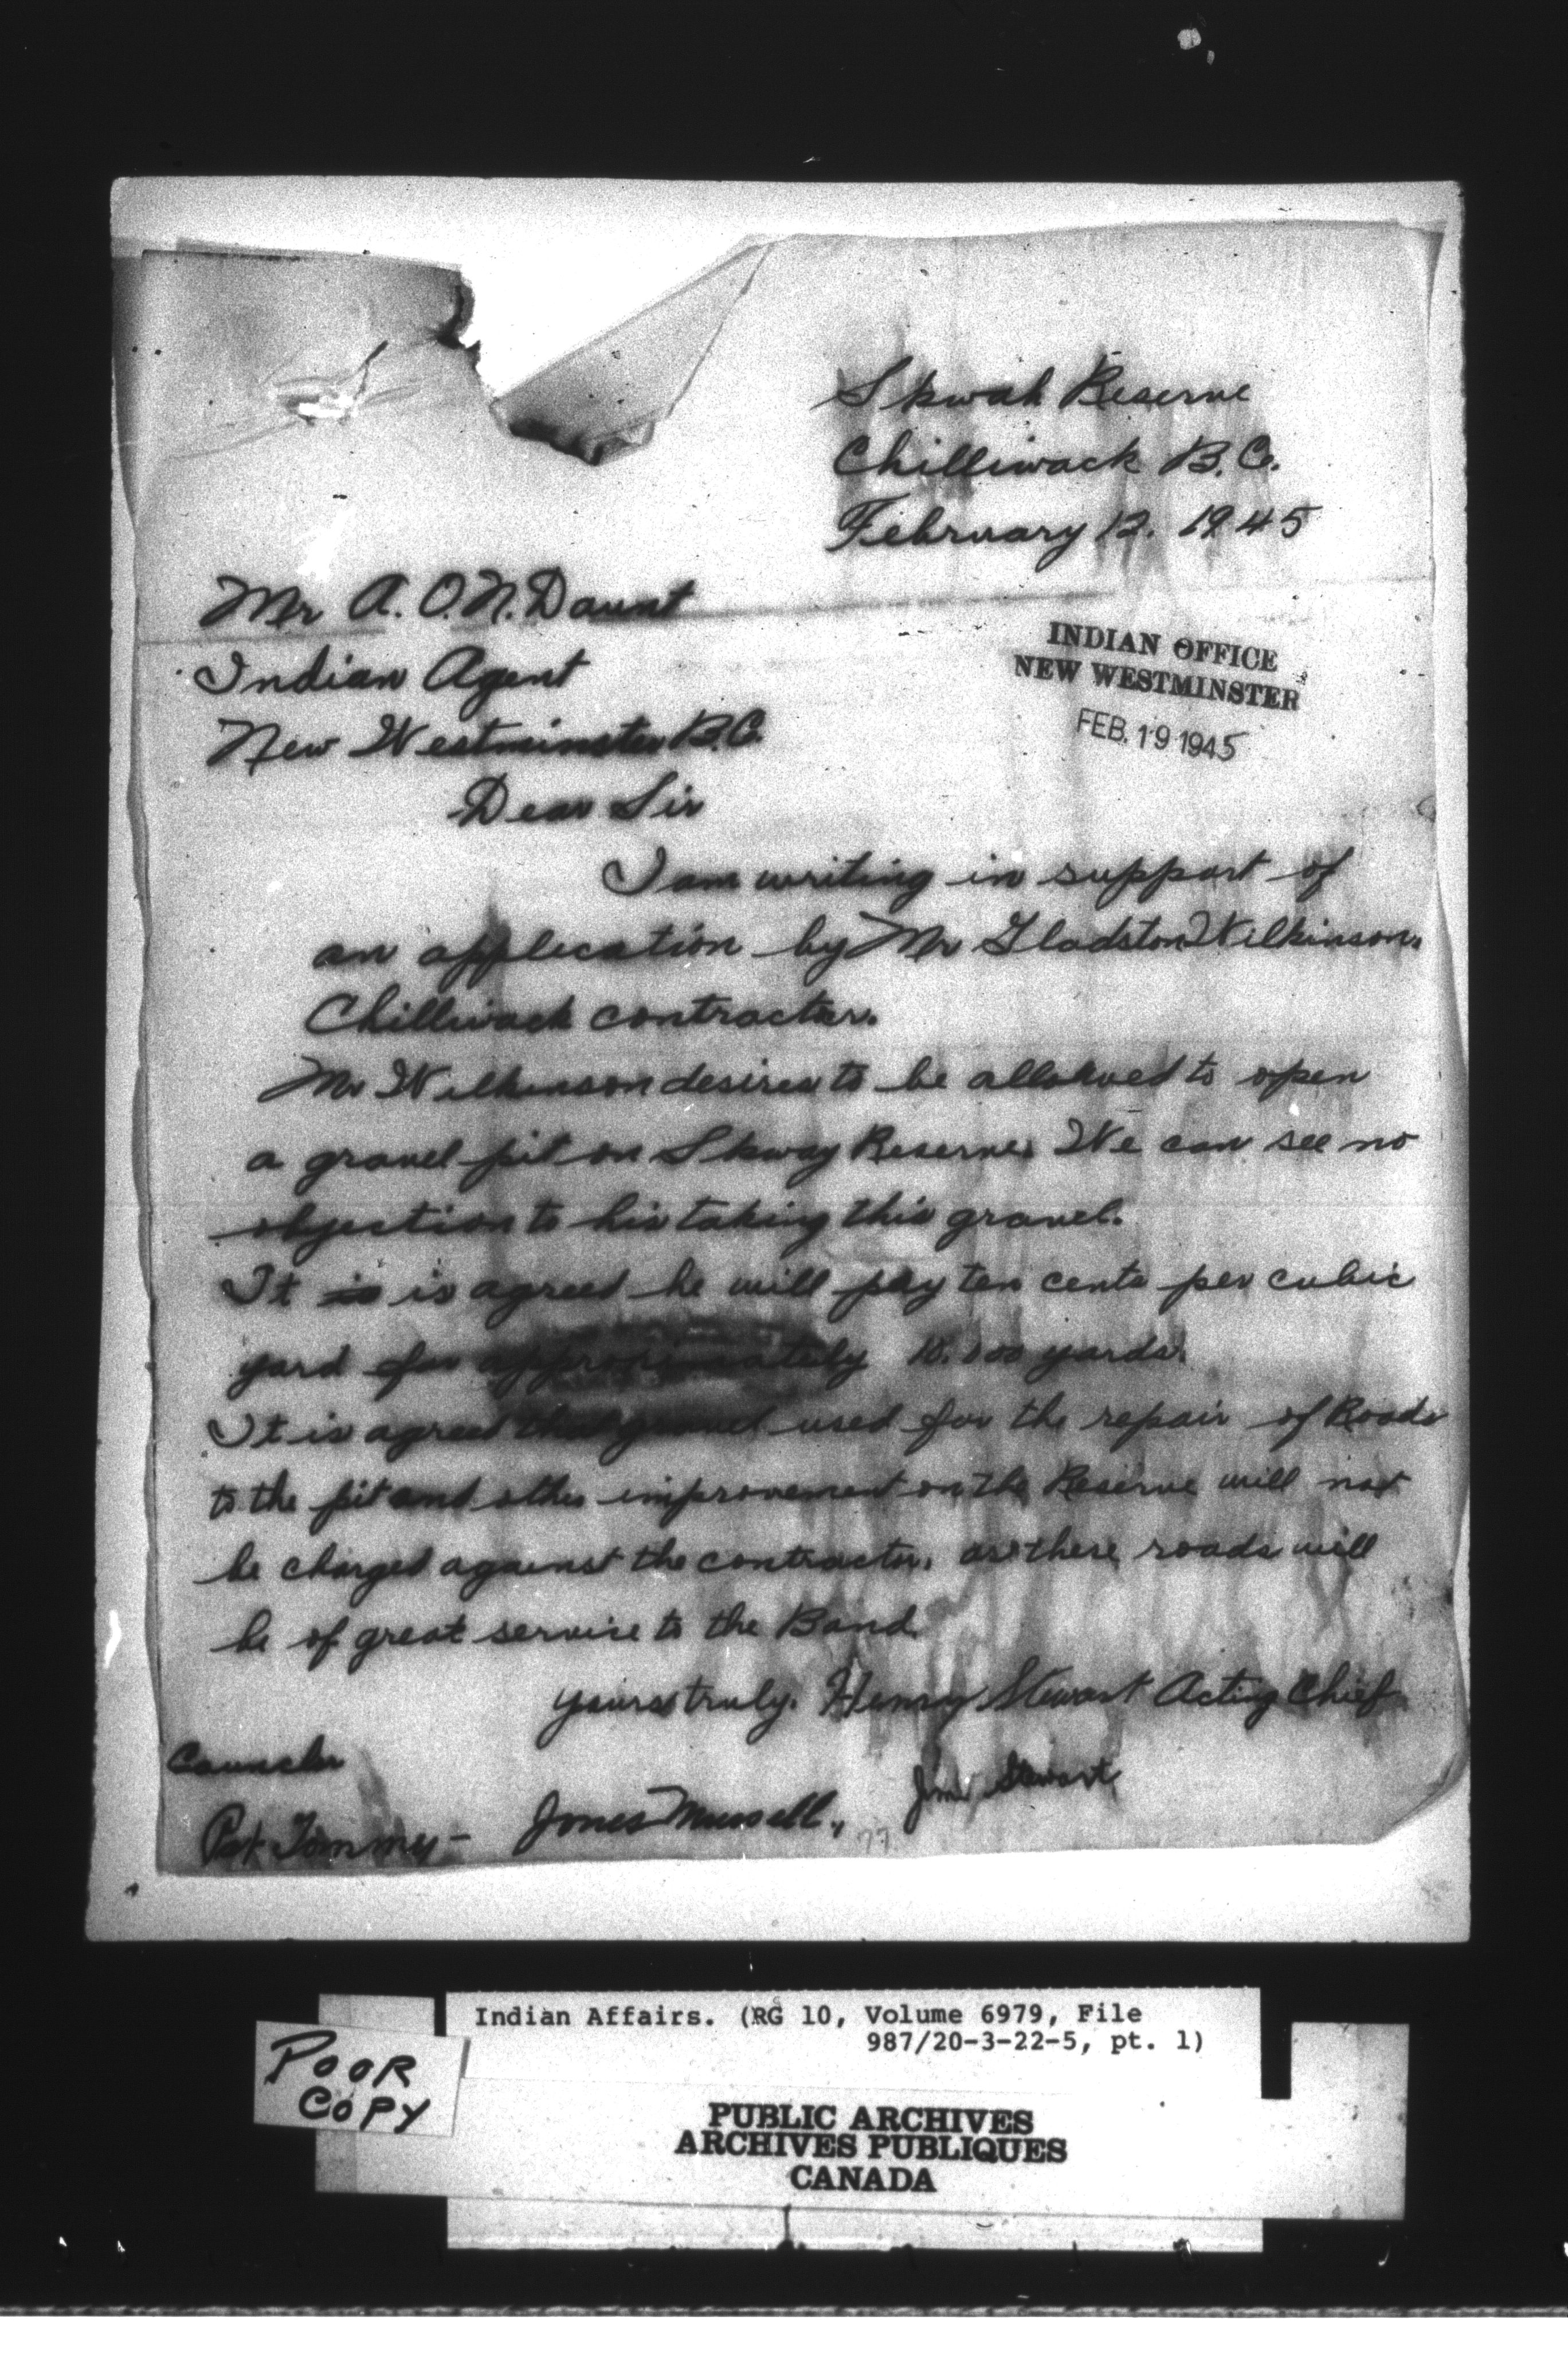 Skwah Reserve
Chilliwack B.C.
February 12. 1945
Mr A. O.N. Daunt
Indian Agent
New Westminster B.C.
INDIAN OFFICE
NEW WESTMINSTER
FEB. 19 1945
Dear Sir
I am writing in support of
an application by Mr Gladston Wilkinson.
Chilliwack contractor.
Mr Wilkinson desires to be allowed to open
a gravel pit on Skway Reserve. We can see no
objection to his taking this gravel.
It is is agreed he will pay ten cents per cubic
yard for approximately yards.
It is agreed that gravel used for the repair of Roads
to the pit and other improvement on the Reserve will not
be charged against the contractor. as these roads will
be of great service to the Band.
yours truly. Henry Stewart Acting Chief
Councler
Pat Tommy - Jones Mussell., Jim Stewart
77
Indian Affairs. (RG 10, Volume 6979, File
987/20-3-22-5, pt. 1)
POOR
COPY
PUBLIC ARCHIVES
ARCHIVES PUBLIQUES
CANADA